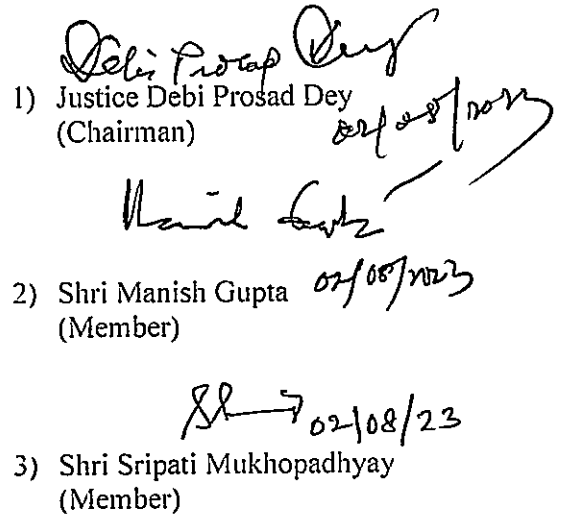 Debi Prosad Dey
1) Justice Debi Prosad Dey
(Chairman)
02/08/2023
Manish Gupta
2) Shri Manish Gupta 02/08/2023
(Member)
02/08/23
3) Shri Sripati Mukhopadhyay
(Member)